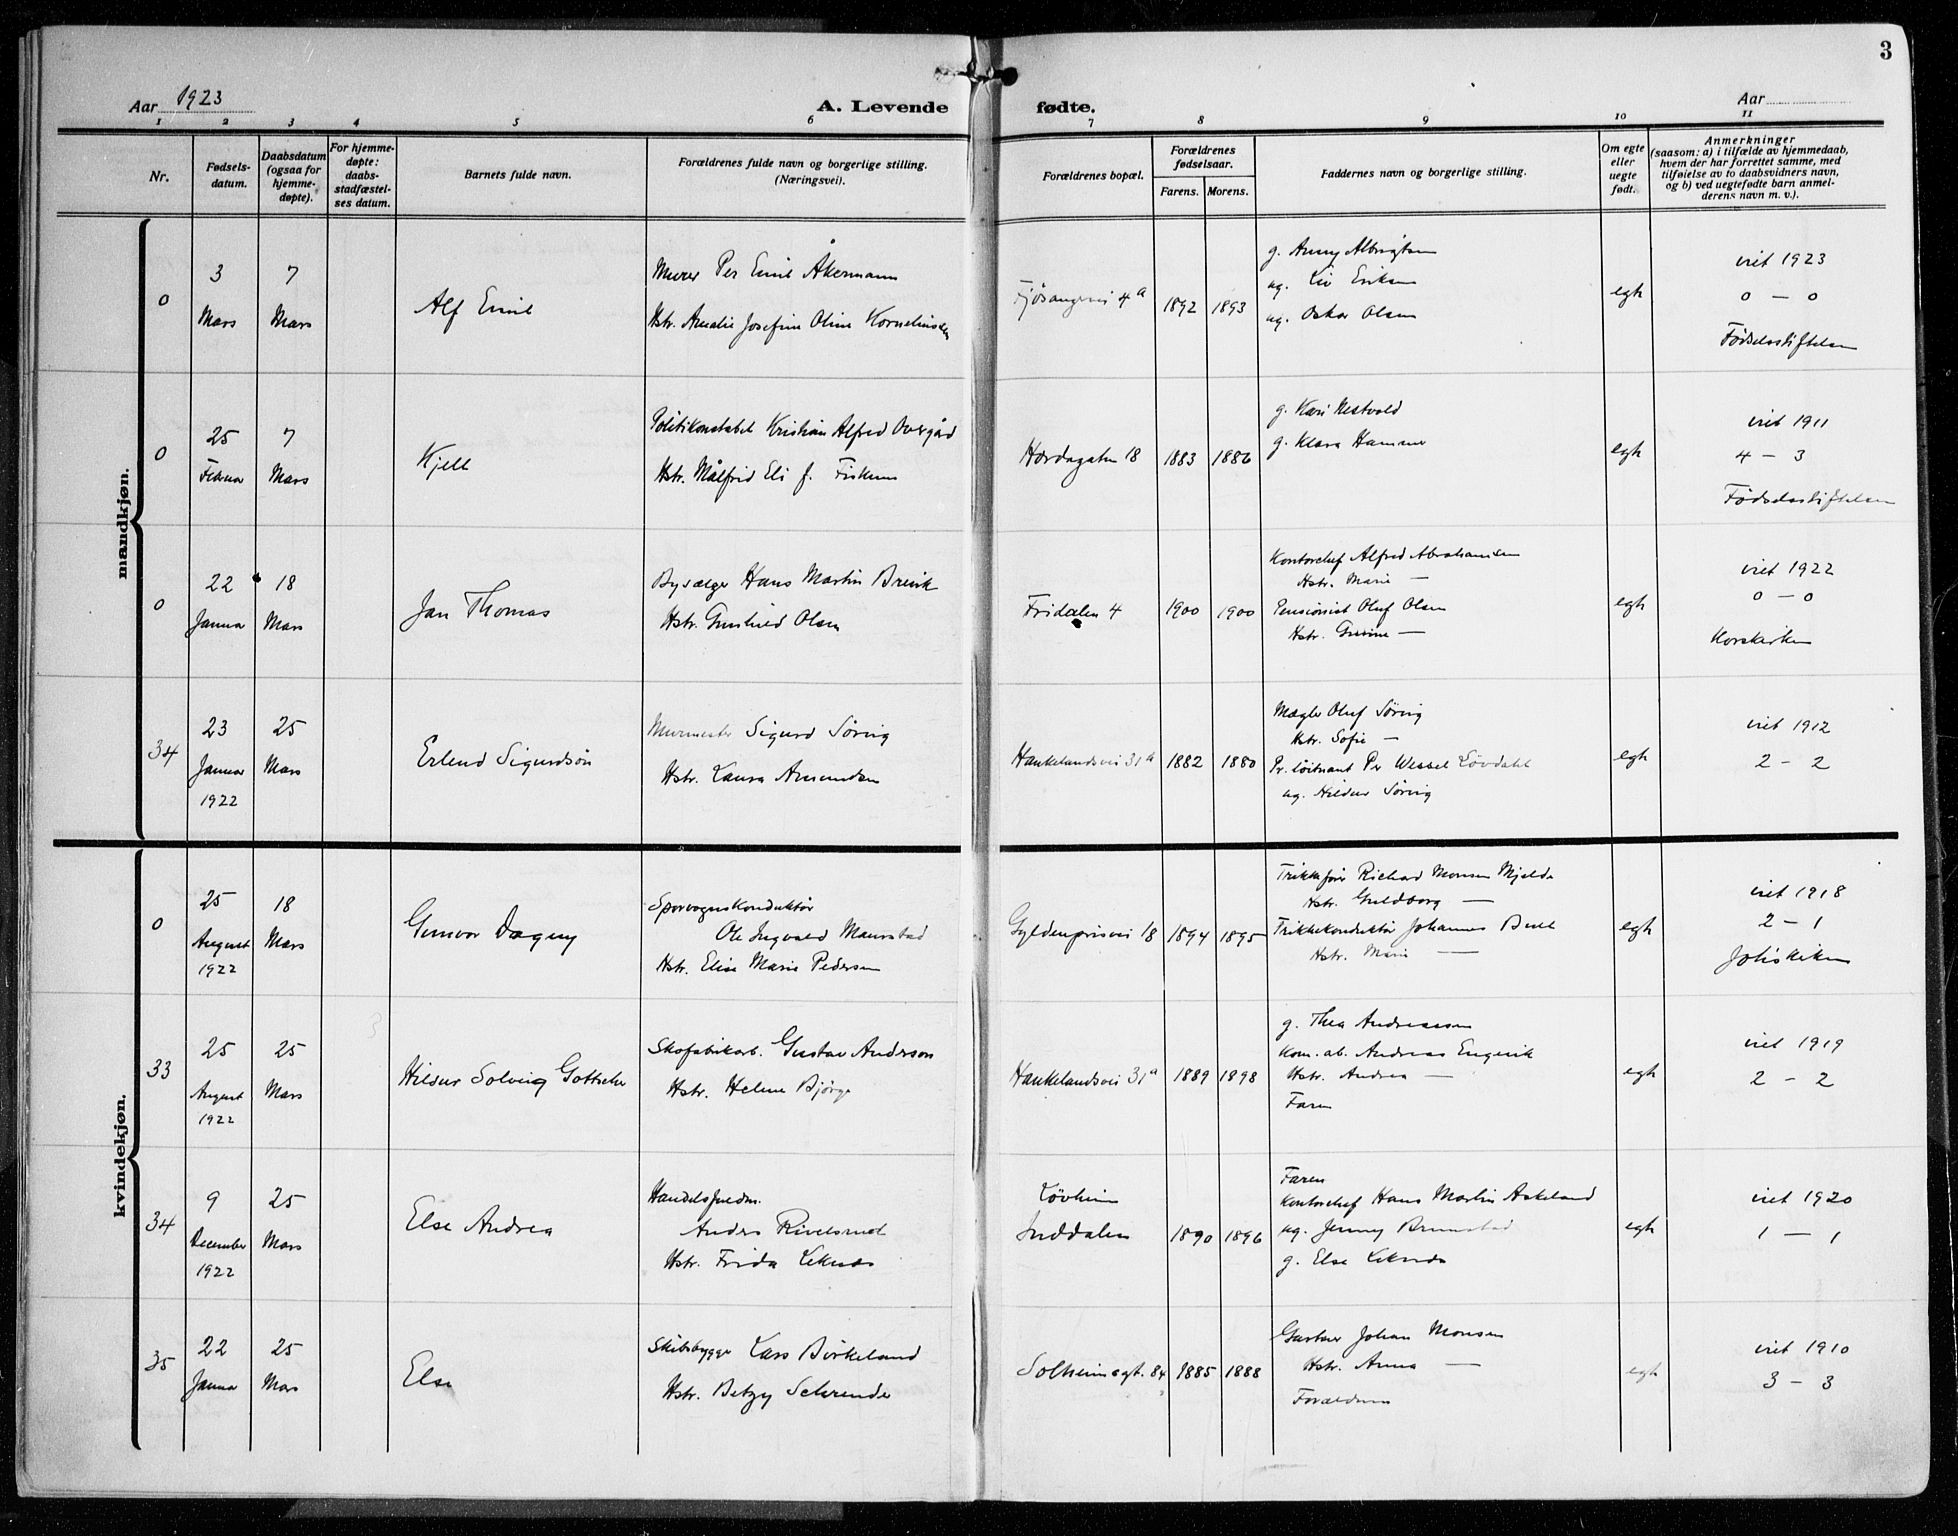 3
Aar 1923
A. Levende
fødte.
Aar
1 2 3 4 5 6 7 8 9 10 11
Nr.
Fødsels-
datum.
Daabsdatum
(ogsaa for
hjemme-
døpte).
For hjemme-
døpte:
daabs-
stadfæstel-
ses datum.
Barnets fulde navn.
Forældrenes fulde navn og borgerlige stilling.
(Næringsvei).
Forældrenes bopæl.
Forældrenes
fødselsaar.
Farens. Morens.
Faddernes navn og borgerlige stilling.
Om egte
eller
uegte
født.
Anmerkninger
(saasom: a) i tilfælde av hjemmedaab,
hvem der har forrettet samme, med
tilføielse av to daabsvidners navn,
og b) ved uegtefødte barn anmel-
derens navn m. v.).
mandkjøn.
0
3
Mars
7
Mars
Alf Emil
Murer Per Emil Åkermann
Hstr. Amalie Josefine Oline Korneliussen
Fjøsangervei 4a
1892 1893
g. Anny Albrigtsen
ug. Liv Eriksen
ug. Oskar Olsen
egte
viet 1923
0 — 0
Fødselsstiftelsen
0
25
Februar
7
Mars
Kjell
Politikonstabel Kristian Alfred Overgård
Hstr. Målfrid Eli f. Fiskum
Hordagaten 18
1883 1886
g. Kari Nestvold
g. Klara Hammer
egte
viet 1911
4 — 3
Fødselsstiftelsen
0
22
Januar
18
Mars
Jan Thomas
Bysælger Hans Martin Breivik
Hstr. Gunhild Olsen
Fridalen 4
1900 1900
Kontorchef Alfred Abrahamsen
Hstr. Marie —
Pensionist Oluf Olsen
Hstr. Gurine —
egte
viet 1922
0 — 0
Korskirken
34
23
Januar
1922
25
Mars
Erlend Sigurdsøn
Murmester Sigurd Søring
Hstr. Laura Amundsen
Haukelandsvei 31a
1882 1880
Mægler Oluf Søring
Hstr. Sofie —
Pr. løitnant Per Wessel Løvdahl
ug. Hildur Søring
egte
viet 1912
2 — 2
kvindekjøn.
0
25
August
1922
18
Mars
Gunvor Dagny
Sporvognskonduktør
Ole Ingvald Maurstad
Hstr. Elise Marie Pedersen
Gyldenprisvei 18
1894 1895
Trikkefører Richard Monsen Mjelde
Hstr. Guldborg —
Trikkekonduktør Johannes Bull
Hstr. Marie —
egte
viet 1918
2 — 1
Johskirken
33
25
August
1922
25
Mars
Hildur Solveig Gottsche
Skofabrikarb. Gustav Anderson
Hstr. Helene Bjørge
Haukelandsvei 31a
1889 1898
g. Thea Andreassen
Kom. ab. Andreas Engevik
Hstr. Andrea —
Faren
egte
viet 1919
2 — 2
34
9
December
1922
25
Mars
Else Andrea
Handelsfuldm.
Anders Rivelsrud
Hstr. Frida Leknes
Løvheim
Inddalen
1890 1896
Faren
Kontorchef Hans Martin Askeland
ug. Jenny Brunstad
g. Else Leknes
egte
viet 1920
1 — 1
35
22
Januar
25
Mars
Else
Skibsbygger Lars Birkeland
Hstr. Betzy
Solheimsgt. 84
1885 1888
Gustav Johan Monsen
Hstr. Anna —
Forældrene
egte
viet 1910
3 — 3